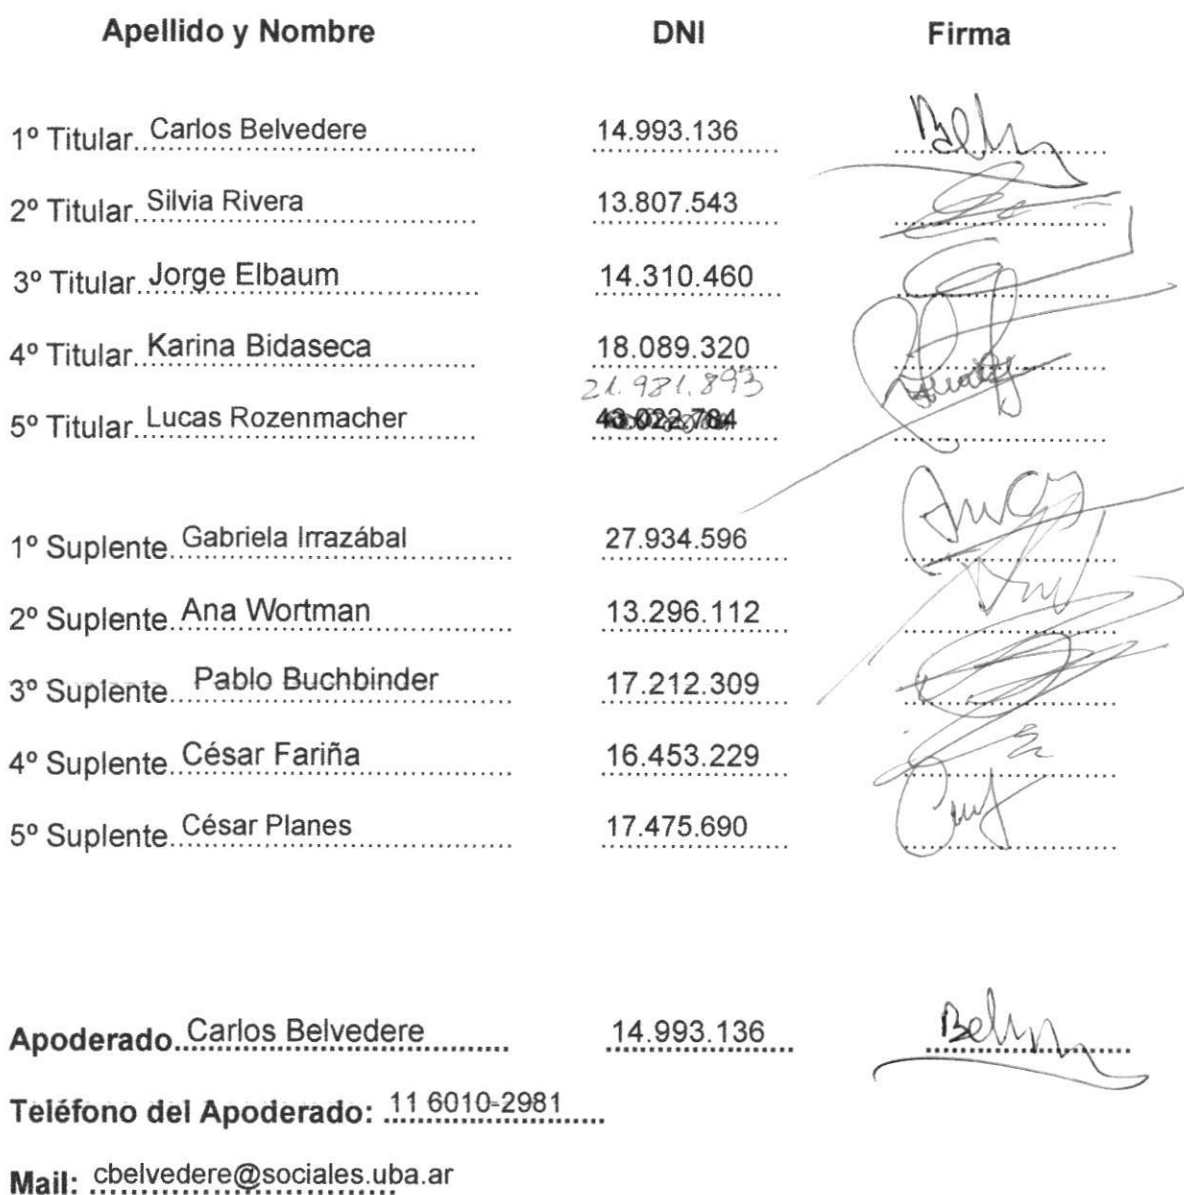 Apellido y Nombre DNI Firma
1º Titular Carlos Belvedere 14.993.136
2º Titular Silvia Rivera 13.807.543
3º Titular Jorge Elbaum 14.310.460
4º Titular Karina Bidaseca 18.089.320
21.981.893
5º Titular Lucas Rozenmacher
1º Suplente Gabriela Irrazábal 27.934.596
2º Suplente Ana Wortman 13.296.112
3º Suplente Pablo Buchbinder 17.212.309
4º Suplente César Fariña 16.453.229
5º Suplente César Planes 17.475.690
Apoderado Carlos Belvedere 14.993.136
Teléfono del Apoderado: 11 6010-2981
Mail: cbelvedere@sociales.uba.ar